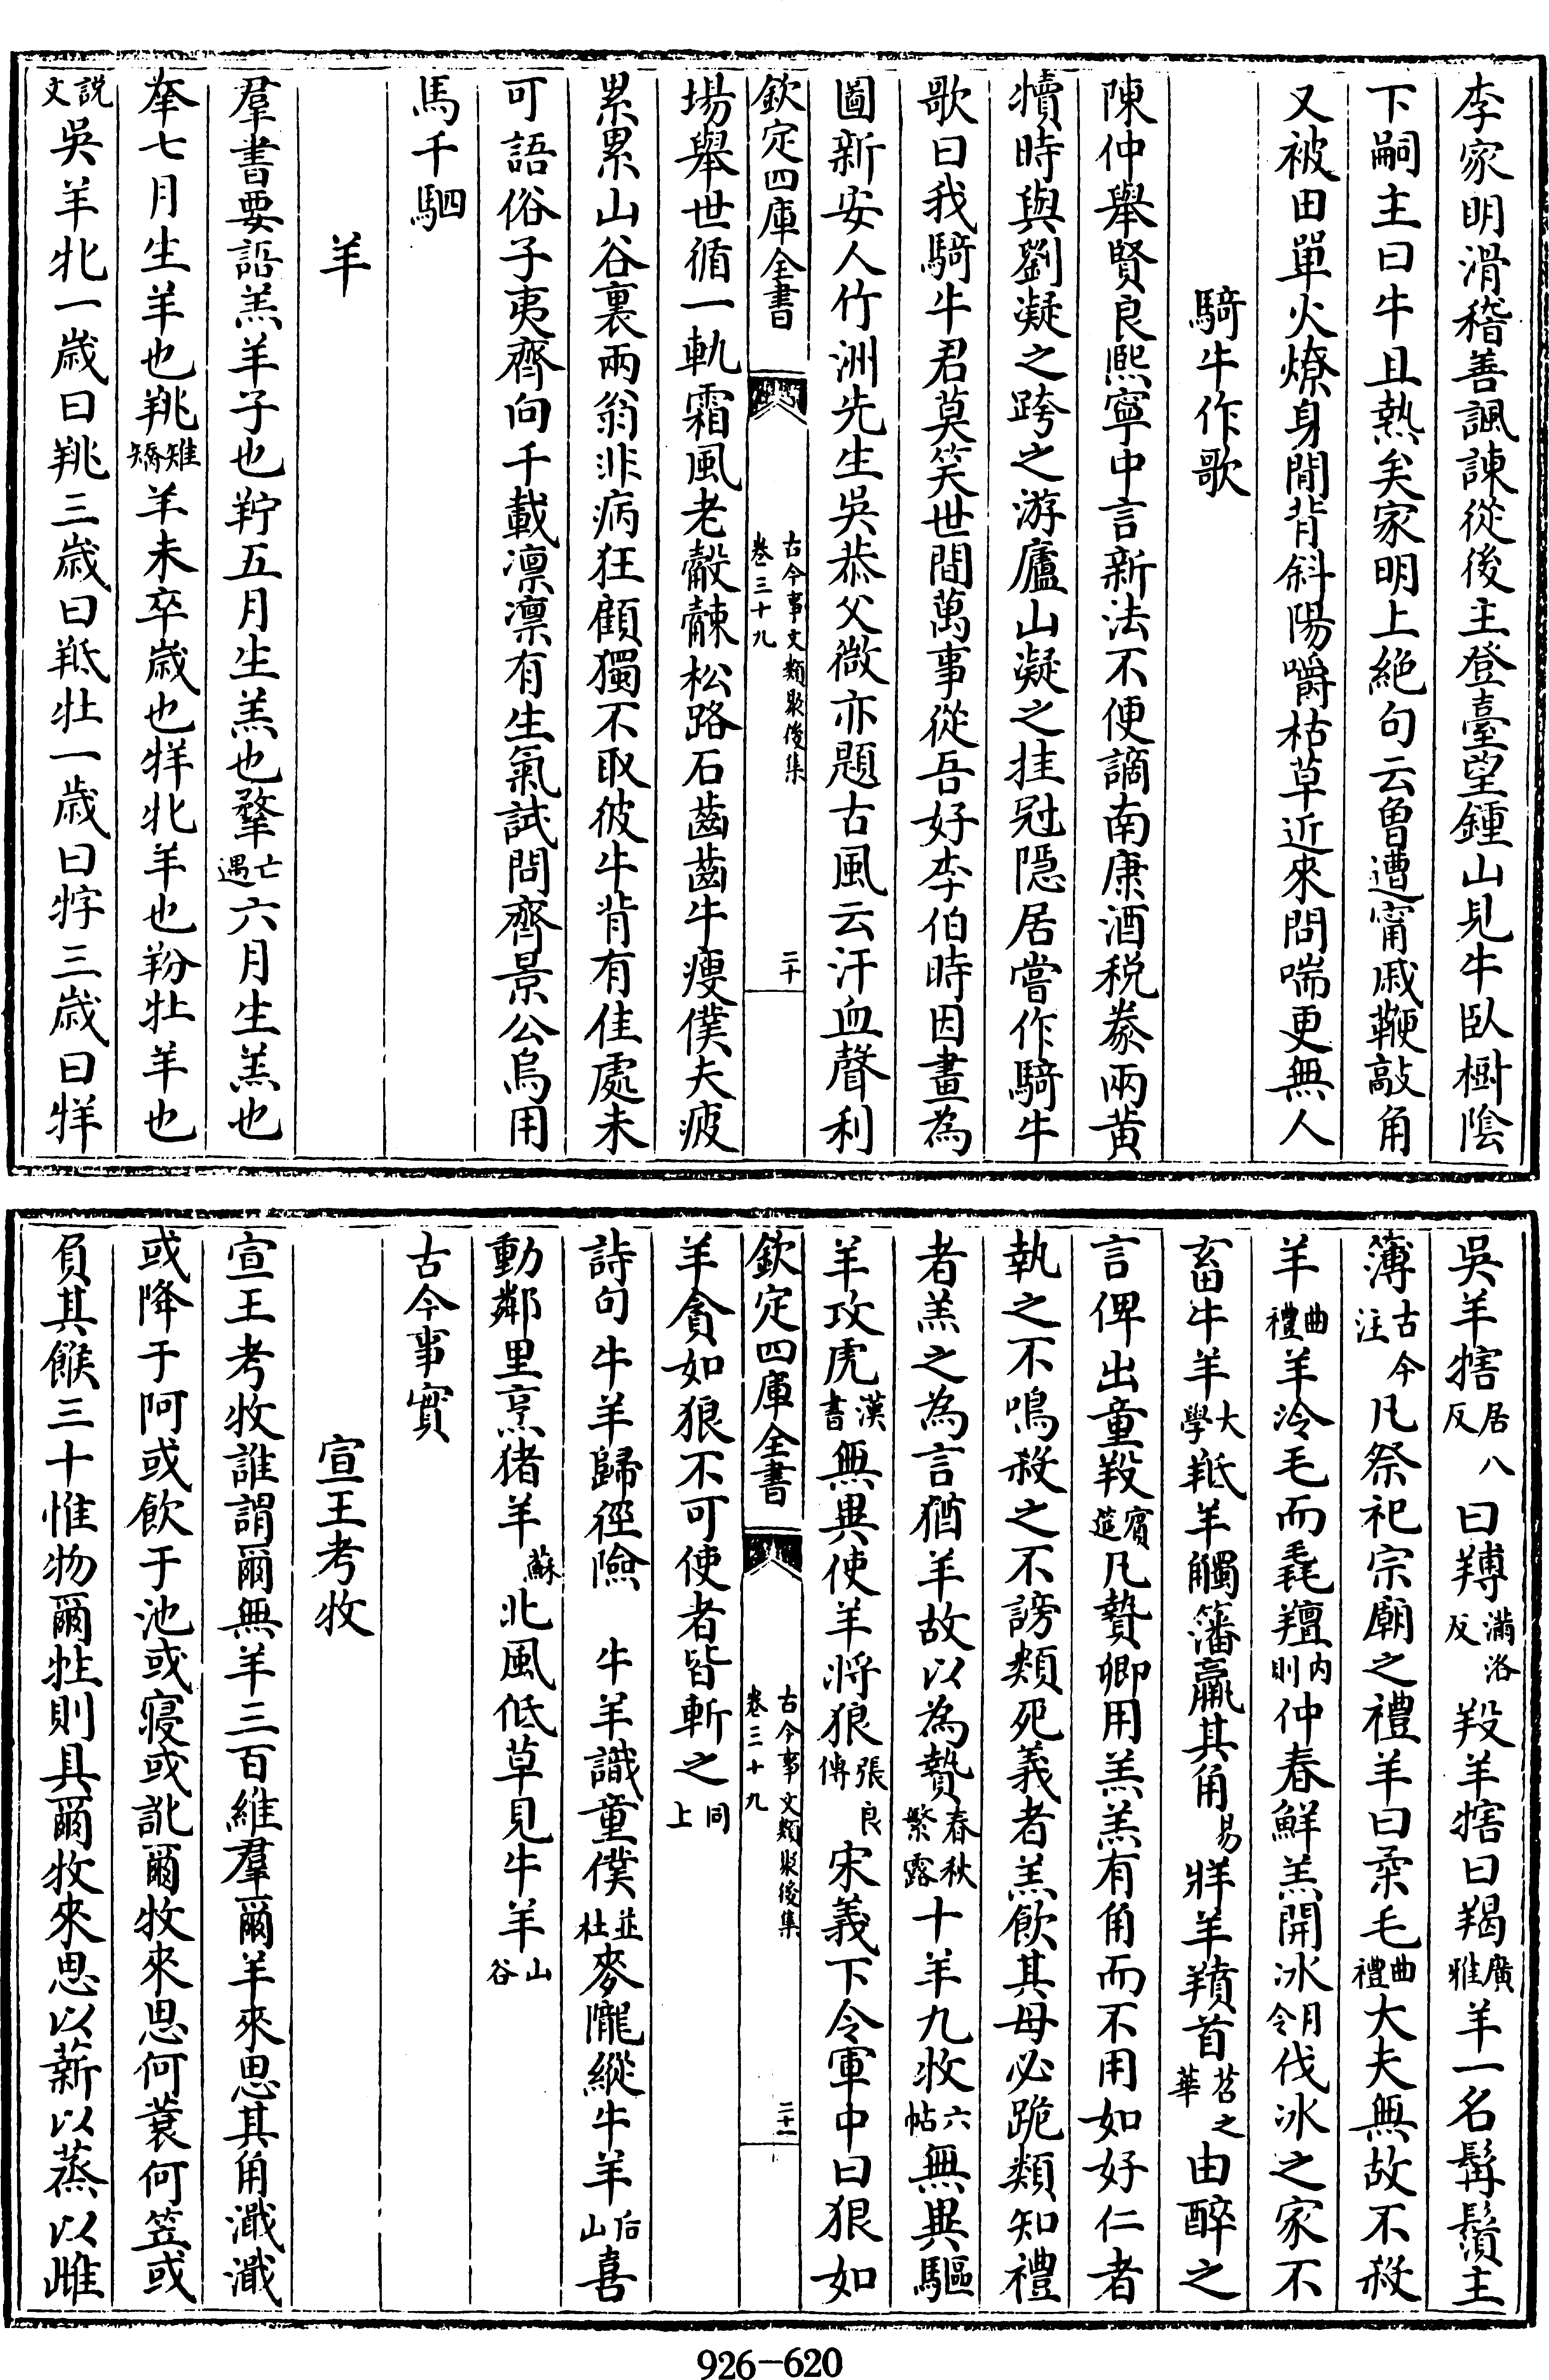 李家明滑稽善諷諫從後主登臺望鍾山見牛臥樹陰
下嗣主曰牛且熱矣家明上絶句云曾遭甯戚鞭敲角
又被田單火燎身閒背斜陽嚼枯草近來問喘更無人
騎牛作歌
陳仲舉賢良熙寧中言新法不便謫南康酒税豢兩黄
犢時與劉凝之跨之游廬山凝之挂冠隱居嘗作騎牛
歌曰我騎牛君莫笑世間萬事從吾好李伯時因畫為
圖新安人竹洲先生吳恭父儆亦題古風云汗血聲利
欽定四庫全書
古今事文類聚後集
卷三十九
二十
場舉世循一軌霜風老觳觫松路石齒齒牛瘦僕夫疲
累累山谷裏兩翁非病狂顧獨不取彼牛背有佳處未
可語俗子夷齊向千載凛凛有生氣試問齊景公烏用
馬千駟
羊
羣書要語羔羊子也羜五月生羔也羍亡遇六月生羔也
羍七月生羊也羜雉矯羊未卒歳也牂牝羊也羒牡羊也
説文吳羊牝一歳曰羜三歳曰羝牡一歳曰牸三歳曰牂
吳羊犗居八反曰羯滿洛反羖羊犗曰羯廣雅羊一名髯鬚主
簿古今注凡祭祀宗廟之禮羊曰柔毛曲禮大夫無故不殺
羊曲禮羊泠毛而毳羶内則仲春鮮羔開冰月令伐冰之家不
畜牛羊大學羝羊觸藩羸其角易牂羊羵首苕之華由醉之
言俾出童羖賓筵凡贄卿用羔羔有角而不用如好仁者
執之不鳴殺之不謗類死義者羔飲其母必跪類知禮
者羔之為言猶羊故以為贄春秋繁露十羊九牧六帖無異驅
羊攻虎漢書無異使羊將狼張良傳宋義下令軍中曰狠如
欽定四庫全書
古今事文類聚後集
卷三十九
二十一
羊貪如狼不可使者皆斬之同上
詩句牛羊歸徑險　牛羊識童僕並杜麥隴縱牛羊后山喜
動鄰里烹猪羊蘇北風低草見牛羊山谷
古今事實
宣王考牧
宣王考牧誰謂爾無羊三百維羣爾羊來思其角濈濈
或降于阿或飲于池或寢或訛爾牧來思何蓑何笠或
負其餱三十惟物爾牲則具爾牧來思以薪以蒸以雌
926-620